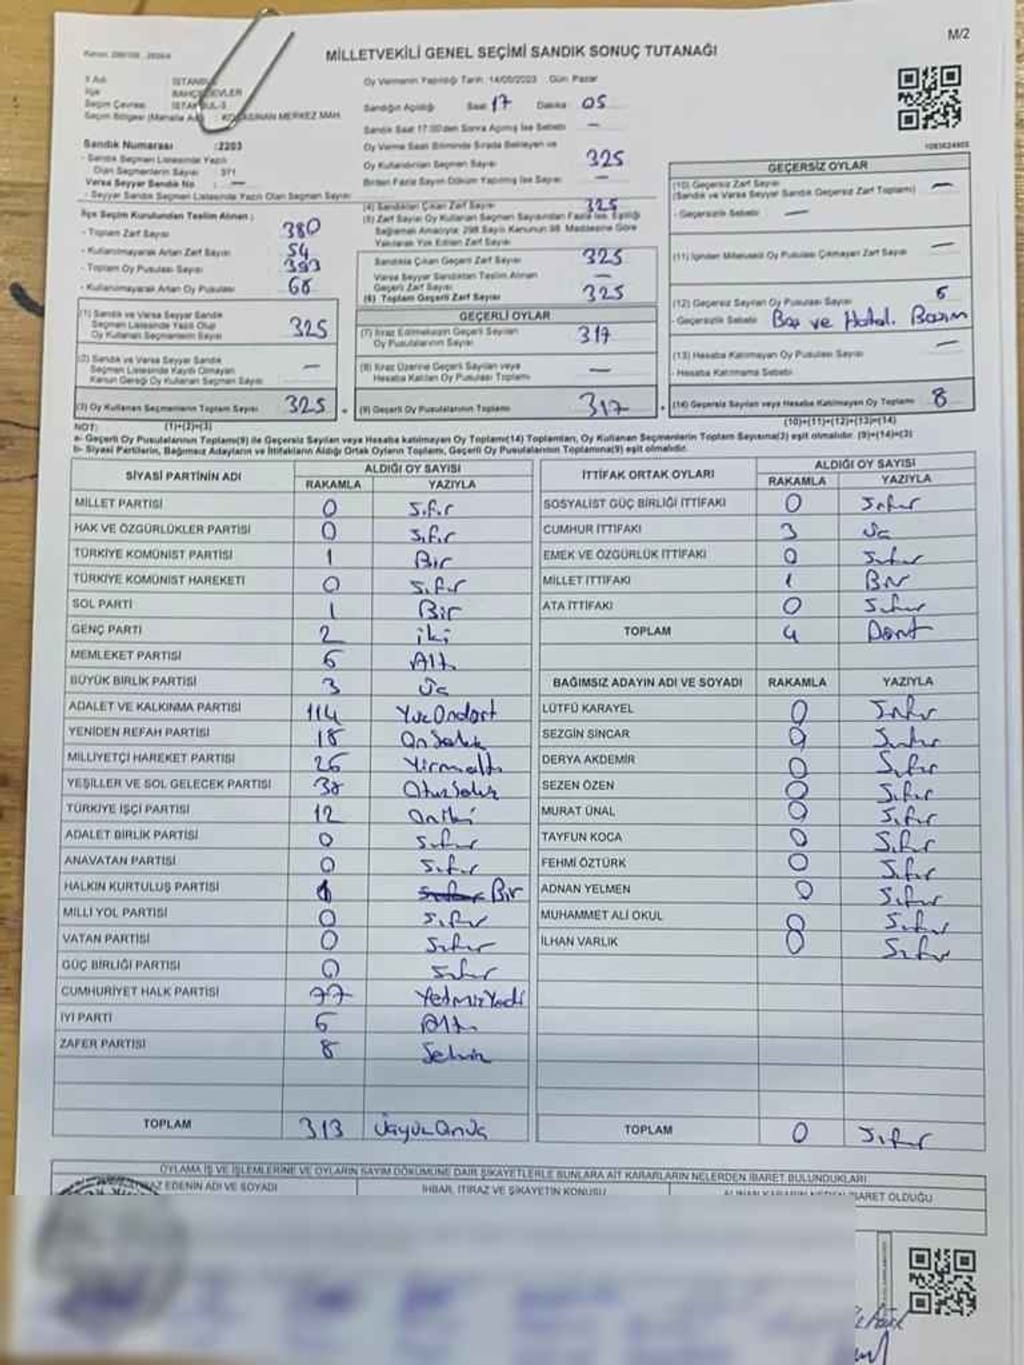 M/2
MİLLETVEKİLİ GENEL SEÇİMİ SANDIK SONUÇ TUTANAĞI
Oy Vermenin Yapıldığı Tarih: 14/05/2023 Gün: Pazar
Sandığın Açıldığı Saat: 17 Dakika: 05
Sandık Saat 17:00'den Sonra Açılmış İse Sebebi —
Sandık Numarası :2203
- Sandık Seçmen Listesinde Yazılı
Olan Seçmenlerin Sayısı : 371
Varsa Seyyar Sandık No —
- Seyyar Sandık Seçmen Listesinde Yazılı Olan Seçmen Sayısı
Oy Verme Saati Bitiminde Sırada Bekleyen ve
Oy Kullandırılan Seçmen Sayısı 325
Birden Fazla Sayım Döküm Yapılmış İse Sayısı —
İlçe Seçim Kurulundan Teslim Alınan :
- Toplam Zarf Sayısı 380
- Kullanılmayarak Artan Zarf Sayısı 54
- Toplam Oy Pusulası Sayısı 393
- Kullanılmayarak Artan Oy Pusulası 68
(1) Sandık ve Varsa Seyyar Sandık
Seçmen Listesinde Yazılı Olup
Oy Kullanan Seçmen Sayısı 325
(2) Sandık ve Varsa Seyyar Sandık
Seçmen Listesinde Kayıtlı Olmayan
Kanun Gereği Oy Kullanan Seçmen Sayısı —
(3) Oy Kullanan Seçmenlerin Toplam Sayısı 325
(4) Sandıktan Çıkan Zarf Sayısı 325
(5) Zarf Sayısı Oy Kullanan Seçmen Sayısından Fazla İse, Eşitliği
Sağlamak Amacıyla; 298 Sayılı Kanunun 98. Maddesine Göre
Yakılarak Yok Edilen Zarf Sayısı
Sandıkta Çıkan Geçerli Zarf Sayısı 325
Varsa Seyyar Sandıktan Teslim Alınan
Geçerli Zarf Sayısı —
(6) Toplam Geçerli Zarf Sayısı 325
GEÇERLİ OYLAR
(7) İtiraz Edilmeksizin Geçerli Sayılan
Oy Pusulalarının Sayısı 317
(8) İtiraz Üzerine Geçerli Sayılan veya
Hesaba Katılan Oy Pusulaları Toplamı —
(9) Geçerli Oy Pusulalarının Toplamı 317
GEÇERSİZ OYLAR
(10) Geçersiz Zarf Sayısı —
(Sandık ve Varsa Seyyar Sandık Geçersiz Zarf Toplamı)
- Geçersizlik Sebebi —
(11) İçinden Milletvekili Oy Pusulası Çıkmayan Zarf Sayısı —
(12) Geçersiz Sayılan Oy Pusulası Sayısı
- Geçersizlik Sebebi
(13) Hesaba Katılmayan Oy Pusulası Sayısı —
- Hesaba Katılmama Sebebi
(14) Geçersiz Sayılan veya Hesaba Katılmayan Oy Toplamı 8
NOT: (1)+(2)=(3) (10)+(11)+(12)+(13)=(14)
a- Geçerli Oy Pusulalarının Toplamı(9) ile Geçersiz Sayılan veya Hesaba katılmayan Oy Toplamı(14) Toplamları, Oy Kullanan Seçmenlerin Toplam Sayısına(3) eşit olmalıdır. (9)+(14)=(3)
b- Siyasi Partilerin, Bağımsız Adayların ve İttifakların Aldığı Ortak Oyların Toplamı, Geçerli Oy Pusulalarının Toplamına(9) eşit olmalıdır.
SİYASİ PARTİNİN ADI ALDIĞI OY SAYISI
RAKAMLA YAZIYLA
MİLLET PARTİSİ 0 Sıfır
HAK VE ÖZGÜRLÜKLER PARTİSİ 0 Sıfır
TÜRKİYE KOMÜNİST PARTİSİ 1 Bir
TÜRKİYE KOMÜNİST HAREKETİ 0 Sıfır
SOL PARTİ 1 Bir
GENÇ PARTİ 2 iki
MEMLEKET PARTİSİ 6 Altı
BÜYÜK BİRLİK PARTİSİ 3 Üç
ADALET VE KALKINMA PARTİSİ 114 YüzOndört
YENİDEN REFAH PARTİSİ 18 OnSekiz
MİLLİYETÇİ HAREKET PARTİSİ 26 Yirmialtı
YEŞİLLER VE SOL GELECEK PARTİSİ 38 OtuzSekiz
TÜRKİYE İŞÇİ PARTİSİ 12 Oniki
ADALET BİRLİK PARTİSİ 0 Sıfır
ANAVATAN PARTİSİ 0 Sıfır
HALKIN KURTULUŞ PARTİSİ 1 Bir
MİLLİ YOL PARTİSİ 0 Sıfır
VATAN PARTİSİ 0 Sıfır
GÜÇ BİRLİĞİ PARTİSİ 0 Sıfır
CUMHURİYET HALK PARTİSİ 77 YetmişYedi
İYİ PARTİ 6 Altı
ZAFER PARTİSİ 8 Sekiz
TOPLAM 313 ÜçyüzOnüç
İTTİFAK ORTAK OYLARI ALDIĞI OY SAYISI
RAKAMLA YAZIYLA
SOSYALİST GÜÇ BİRLİĞİ İTTİFAKI 0 Sıfır
CUMHUR İTTİFAKI 3 Üç
EMEK VE ÖZGÜRLÜK İTTİFAKI 0 Sıfır
MİLLET İTTİFAKI 1 Bir
ATA İTTİFAKI 0 Sıfır
TOPLAM 4 Dört
BAĞIMSIZ ADAYIN ADI VE SOYADI RAKAMLA YAZIYLA
LÜTFÜ KARAYEL 0 Sıfır
SEZGİN SİNCAR 0 Sıfır
DERYA AKDEMİR 0 Sıfır
SEZEN ÖZEN 0 Sıfır
MURAT ÜNAL 0 Sıfır
TAYFUN KOCA 0 Sıfır
FEHMİ ÖZTÜRK 0 Sıfır
ADNAN YELMEN 0 Sıfır
MUHAMMET ALİ OKUL 0 Sıfır
İLHAN VARLIK 0 Sıfır
TOPLAM 0 Sıfır
OYLAMA İŞ VE İŞLEMLERİNE VE OYLARIN SAYIM DÖKÜMÜNE DAİR ŞİKAYETLERLE BUNLARA AİT KARARLARIN NELERDEN İBARET BULUNDUKLARI
EDENİN ADI VE SOYADI İHBAR, İTİRAZ VE ŞİKAYETİN KONUSU